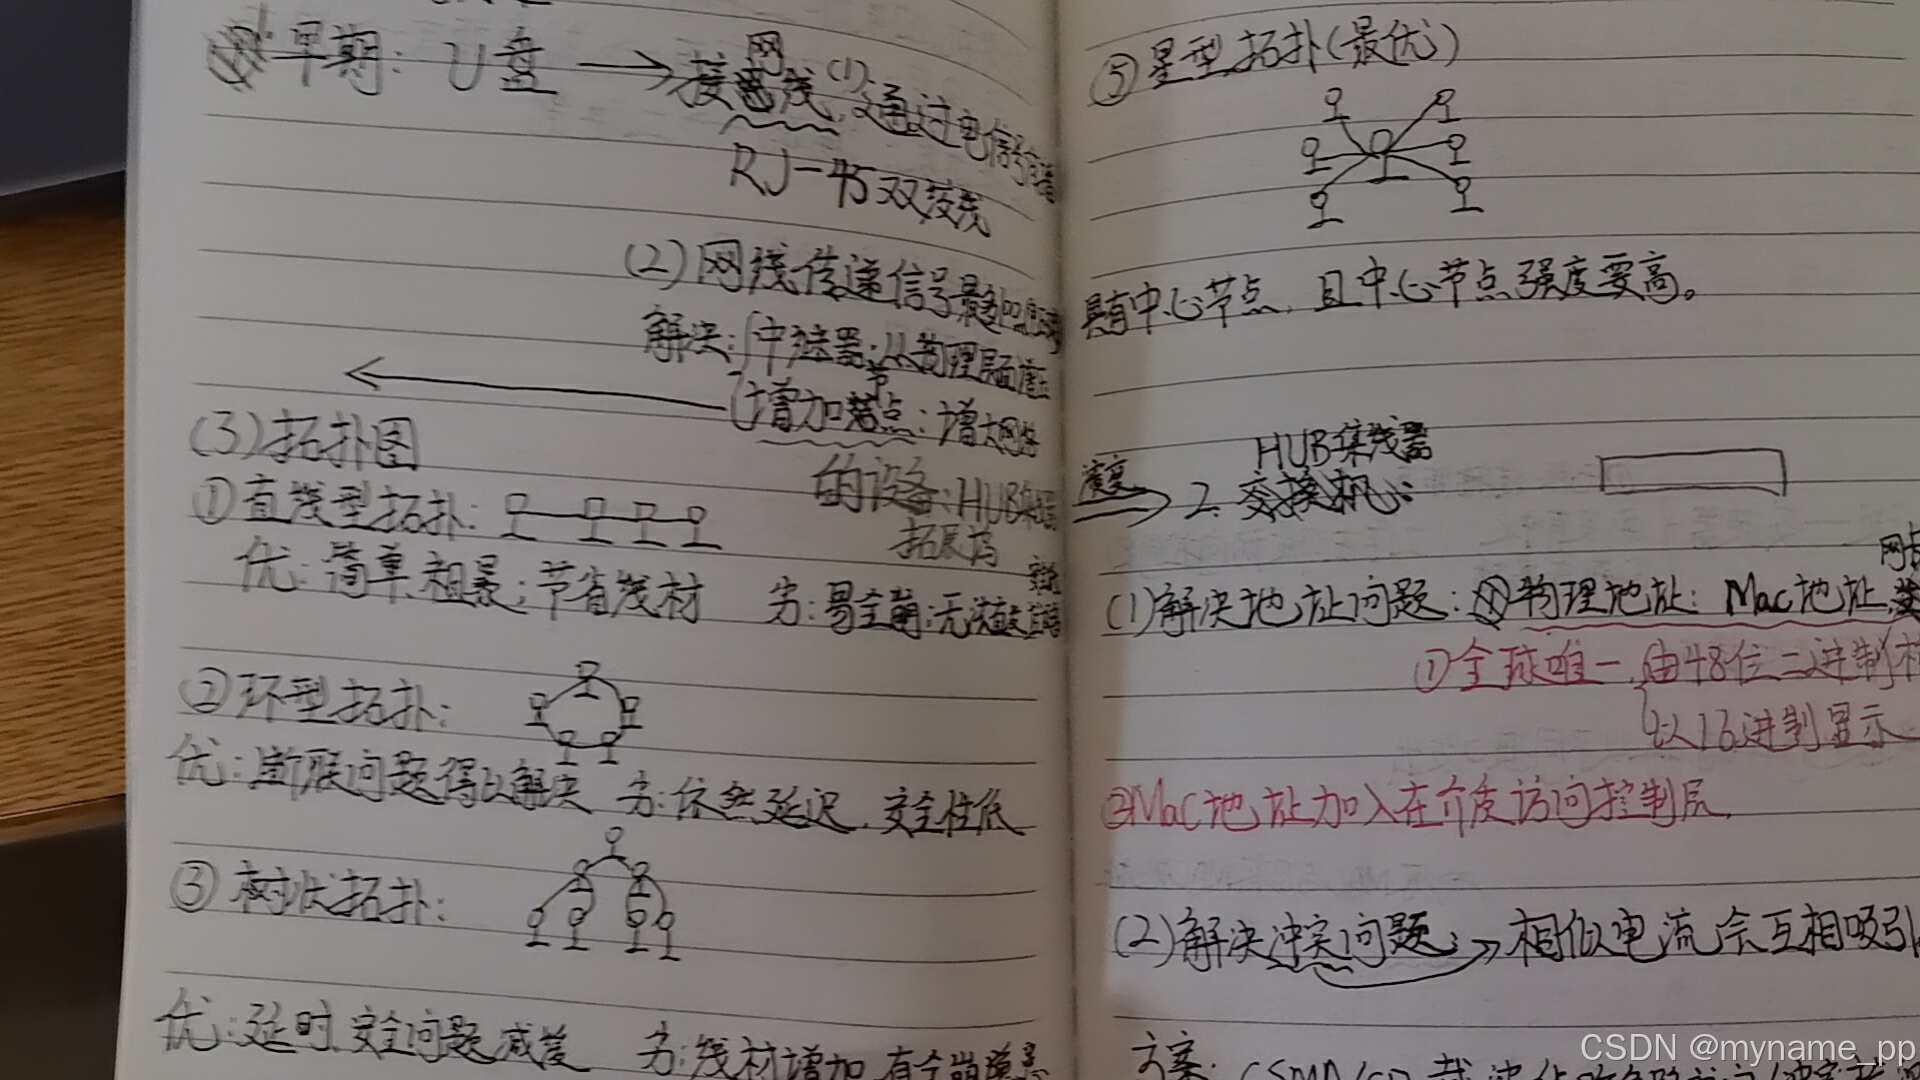 早期: U盘 → 接网线, (1)通过电信号
RJ-45双绞线
(2)网线传递信号最
解决: 中继器: 从物理层面
增加节点: 增大网络
的设备: HUB
(3)拓扑图
①直线型拓扑:
优: 简单粗暴; 节省线材 劣: 易全崩; 无法
②环型拓扑:
优: 断联问题得以解决 劣: 依然延迟, 安全性低
③树状拓扑:
优: 延时,安全问题减轻 劣: 线材增加,有全崩
⑤星型拓扑(最优)
具有中心节点, 且中心节点强度要高。
HUB集线器
2. 交换机:
(1)解决地址问题: 物理地址: Mac地址,
①全球唯一,由48位二进制
以16进制显示
②Mac地址加入在介质访问控制层,
(2)解决冲突问题 → 相似电流会互相吸引
方案: CSMA/CD
CSDN @myname_pp